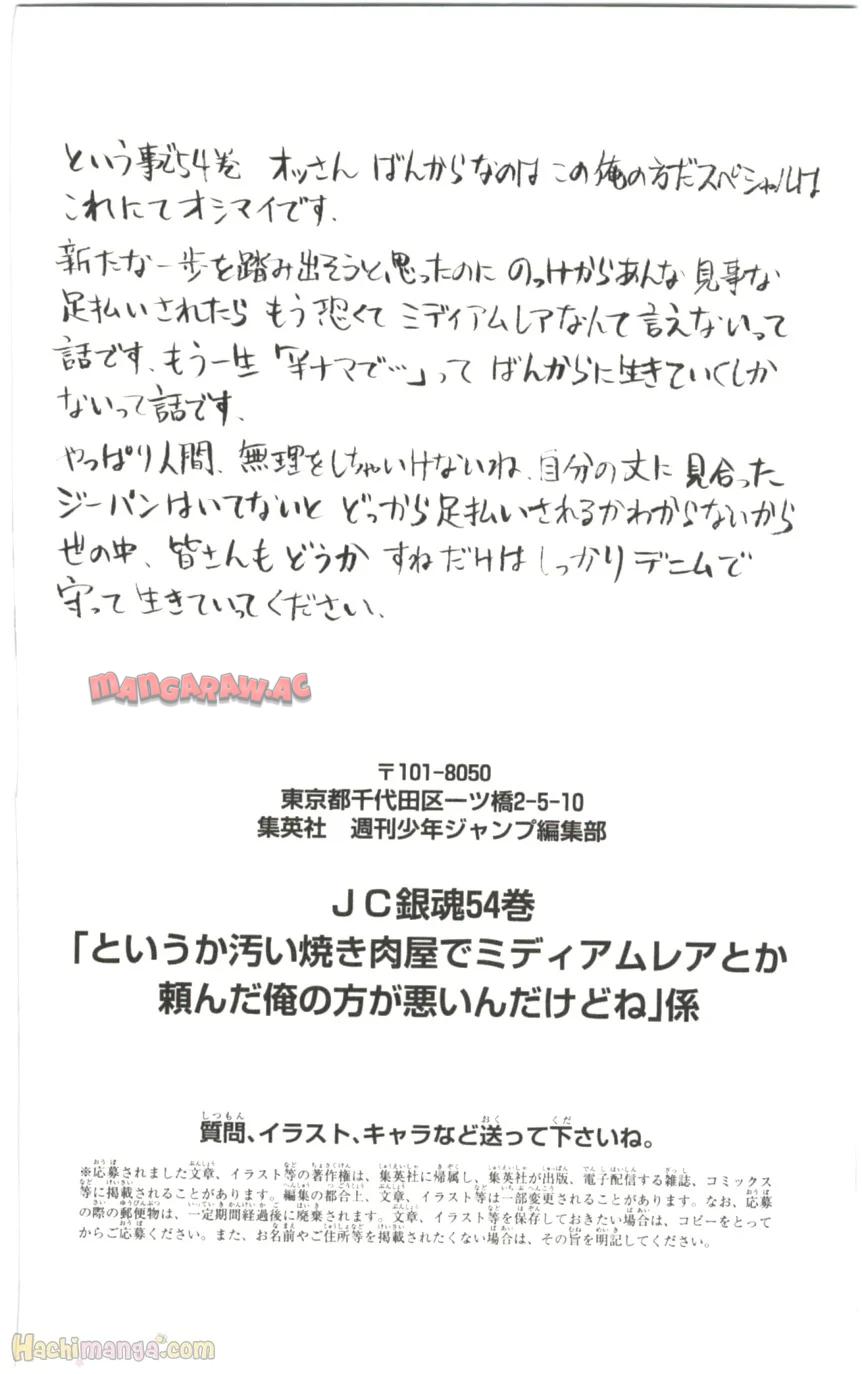 という事で54巻 オッさん ばんからなのは この俺の方だスペシャルは
これにてオシマイです.
新たな一歩を踏み出そうと思ったのに のっけからあんな見事な
足払いされたら もう恐くて ミディアムレアなんて言えないって
話です、もう一生「半ナマで…」って ばんからに生きていくしか
ないって話です、
やっぱり人間、無理をしちゃいけないね、自分の丈に見合った
ジーパンはいてないと どっから足払いされるかわからないから
世の中、皆さんもどうか すねだけはしっかりデニムで
守って生きていってください、
MANGARAW.AC
〒101-8050
東京都千代田区一ツ橋2-5-10
集英社 週刊少年ジャンプ編集部
JC銀魂54巻
「というか汚い焼き肉屋でミディアムレアとか
頼んだ俺の方が悪いんだけどね」係
質問、イラスト、キャラなど送って下さいね。
※応募されました文章、イラスト等の著作権は、集英社に帰属し、集英社が出版、電子配信する雑誌、コミックス
等に掲載されることがあります。編集の都合上、文章、イラスト等は一部変更されることがあります。なお、応募
の際の郵便物は、一定期間経過後に廃棄されます。文章、イラスト等を保存しておきたい場合は、コピーをとって
からご応募ください。また、お名前やご住所等を掲載されたくない場合は、その旨を明記してください。
Hachimanga.com